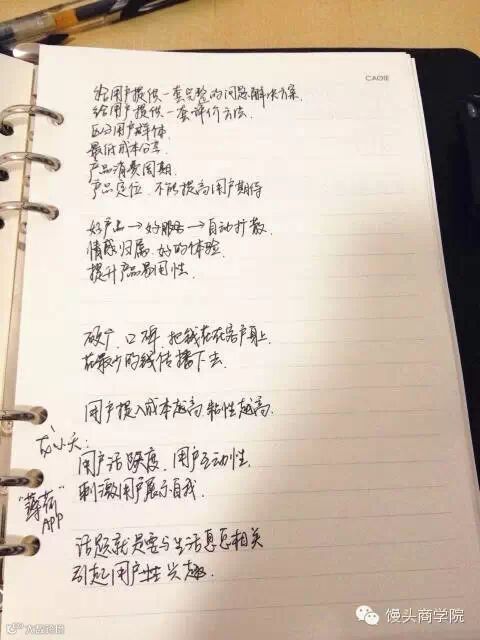 CAGIE
给用户提供一套完整的问题解决方案.
给用户提供一套评价方法.
区分用户群体.
最低成本分享
产品消费周期.
产品定位 不能提高用户期待
好产品→好服务→自动扩散.
情感归属 好的体验.
提升产品易用性.
口碑 把钱花在客户身上.
花最少的钱传播下去.
用户投入成本越高, 粘性越高.
龙小天:
用户活跃度、用户互动性.
刺激用户展示自我.
"薄荷"
APP
话题就是要与生活息息相关
引起用户性兴趣.
馒头商学院